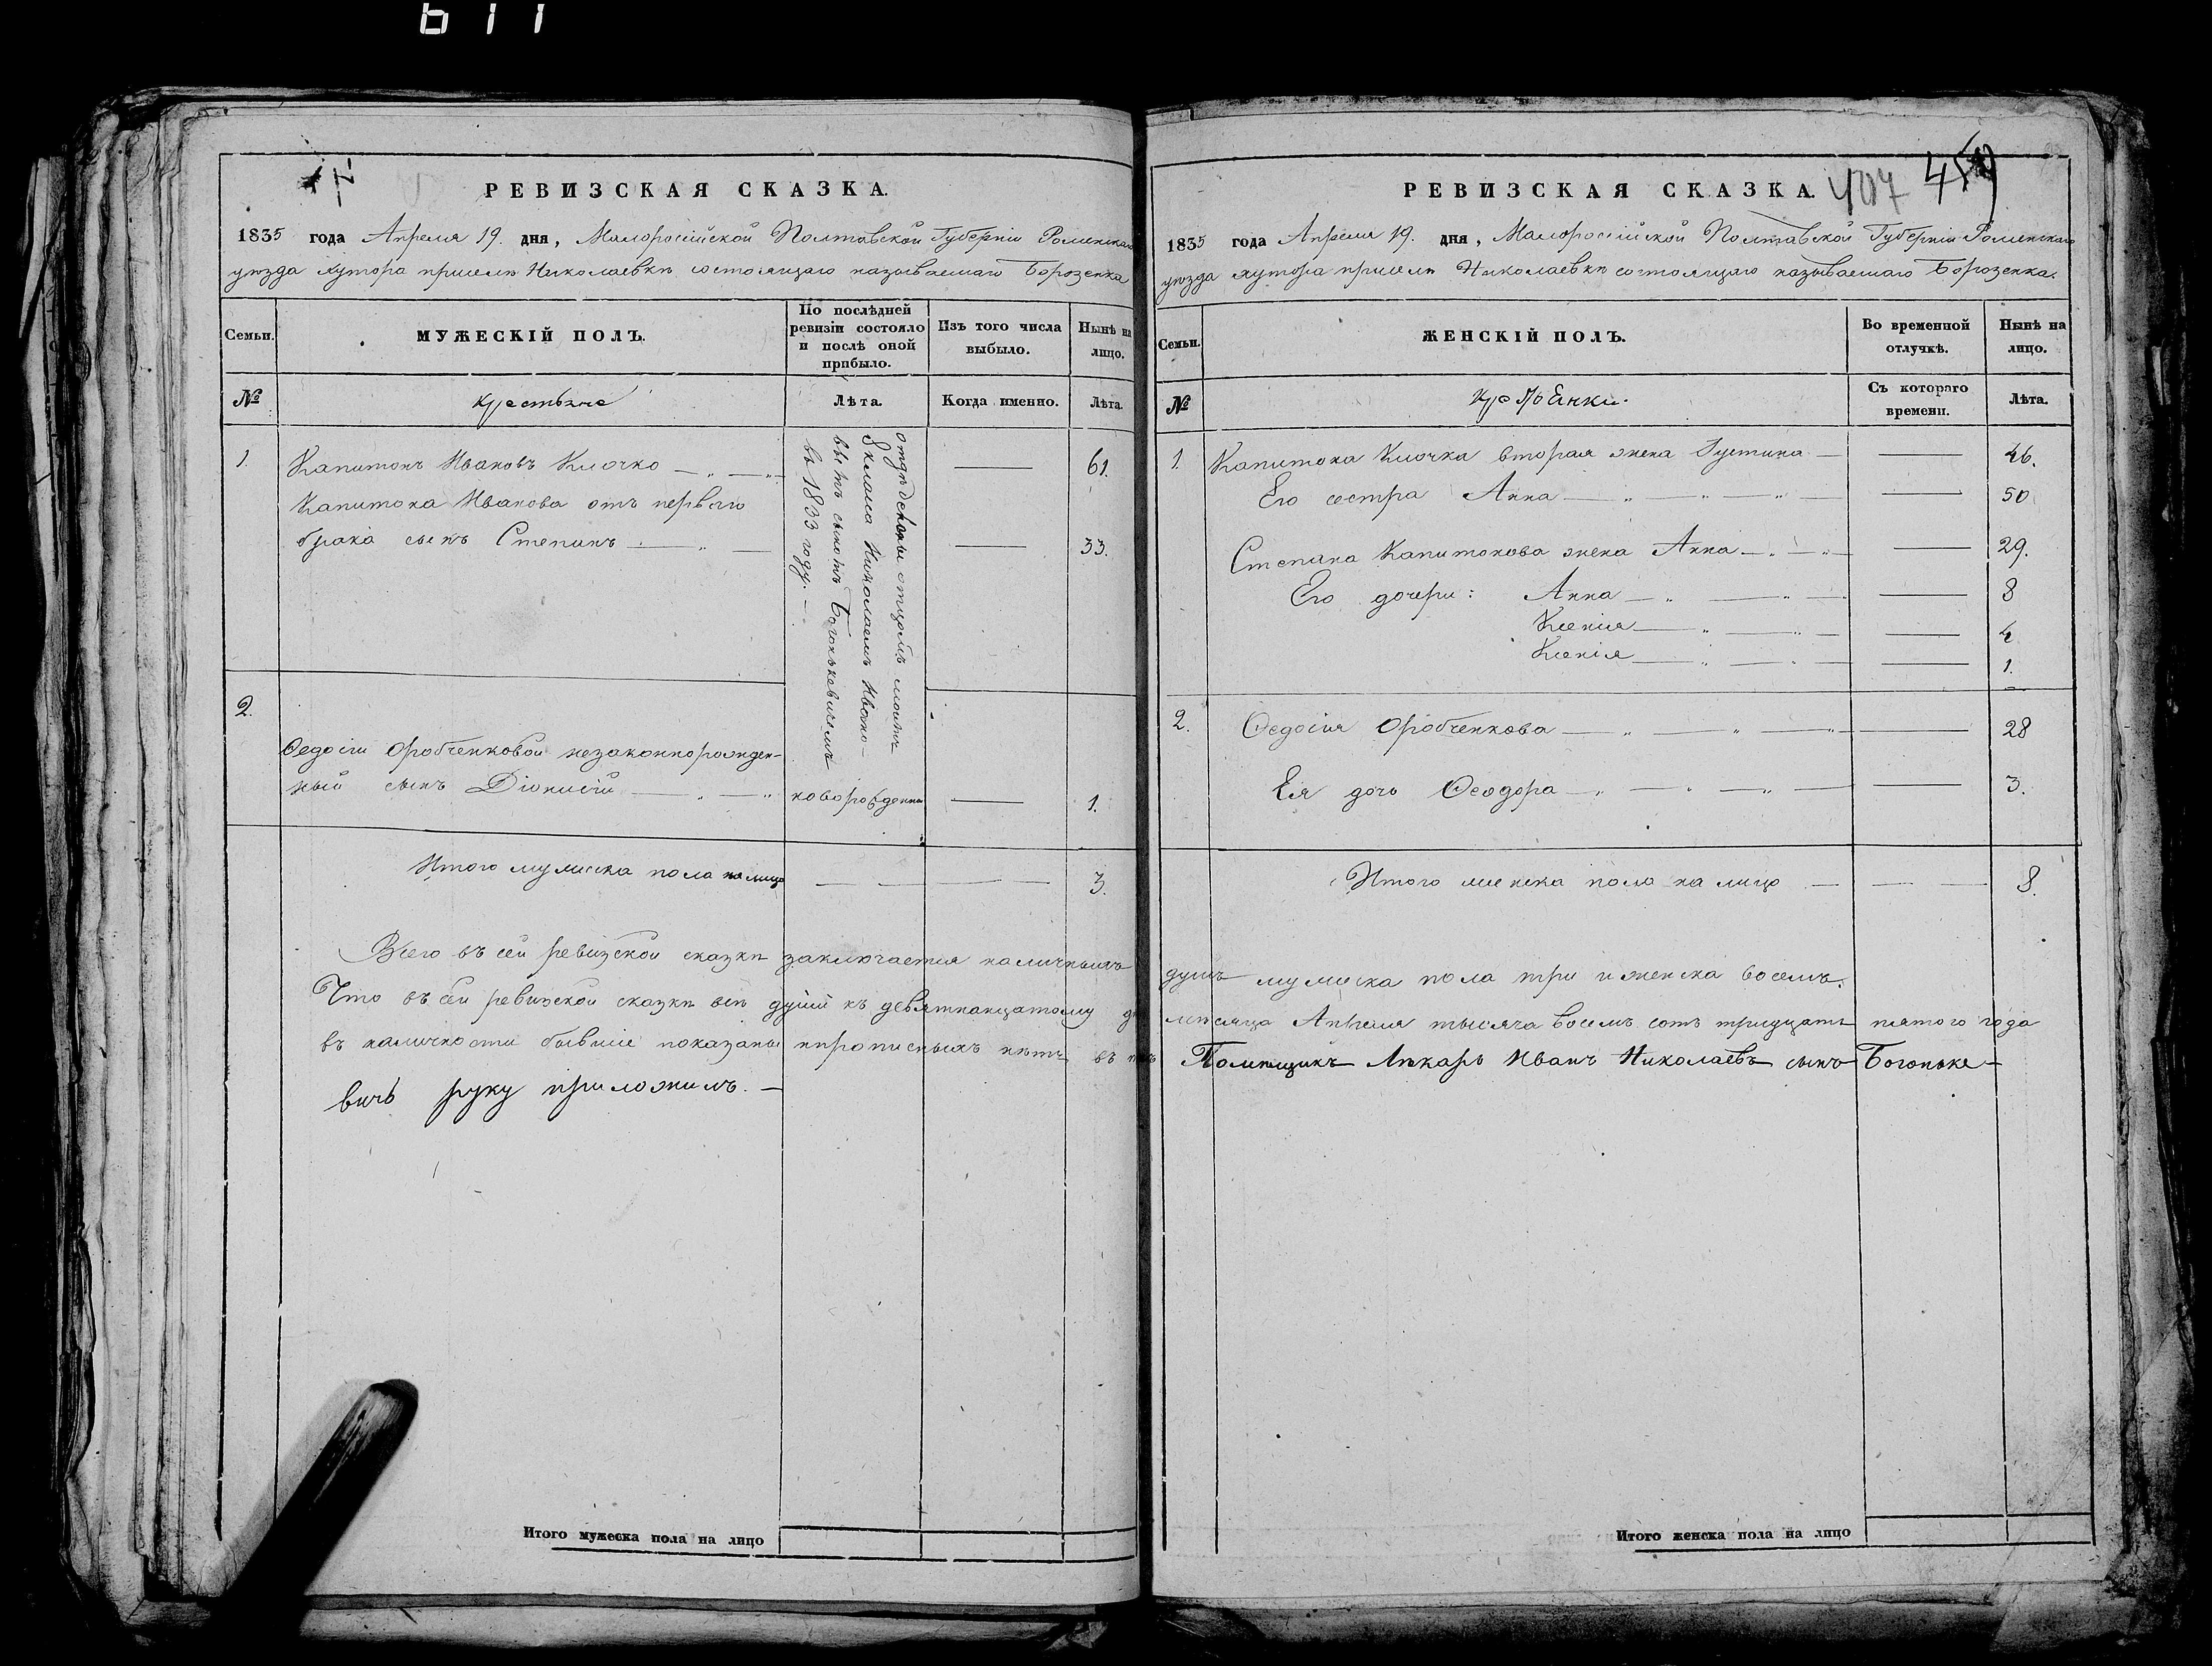 611
РЕВИЗСКАЯ СКАЗКА.
1835 года Апреля 19. дня, Малоросiйской Полтавской Губернiи Роменскаго
уѣзда хутора при селѣ Николаевкѣ состоящаго называемаго Борозенка
Семьи.
МУЖЕСКІЙ ПОЛЪ.
По послѣдней ревизіи состояло и послѣ оной прибыло.
Изъ того числа выбыло.
Нынѣ на лицо.
№
Крестьяне
Лѣта.
Когда именно.
Лѣта.
1. Капитонъ Ивановъ Клочко 61.
Капитона Иванова отъ перваго
брака сынъ Степанъ 33.
отцемъ моимъ
Николаемъ Ивано-
вымъ сыномъ Богонькевичемъ
въ 1833 году.
2.
Ѳедосiи Оробченковой незаконнорожден-
ный сынъ Дiонисiй новорожденный 1.
Итого мужеска пола на лицо 3.
Всего въ сей ревизской сказкѣ заключается наличныхъ
Что въ сей ревизской сказкѣ всѣ души къ девятнанцатому
въ наличности бывшiе показаны и прописныхъ нѣтъ въ
вичъ руку приложилъ.
Итого мужеска пола на лицо
РЕВИЗСКАЯ СКАЗКА.
407
1835 года Апреля 19. дня, Малоросiйской Полтавской Губернiи Роменскаго
уѣзда хутора при селѣ Николаевкѣ состоящаго называемаго Борозенка.
Семьи.
ЖЕНСКІЙ ПОЛЪ.
Во временной отлучкѣ.
Нынѣ на лицо.
№
Крестьянки.
Съ котораго времени.
Лѣта.
1. Капитона Клочка вторая жена Густина 46.
Его сестра Анна 50
Степана Капитонова жена Анна 29.
Его дочери: Анна 8
Ксенiя 4
Ксенiя 1.
2. Ѳедосiя Оробченкова 28
Ея дочь Ѳеодора 3.
Итого женска пола на лицо 8.
душъ мужеска пола три и женска восемь.
мѣсяца Апреля тысяча восемь сотъ тридцать пятого года
Помѣщикъ Лѣкарь Иванъ Николаевъ сынъ Богоньке-
Итого женска пола на лицо